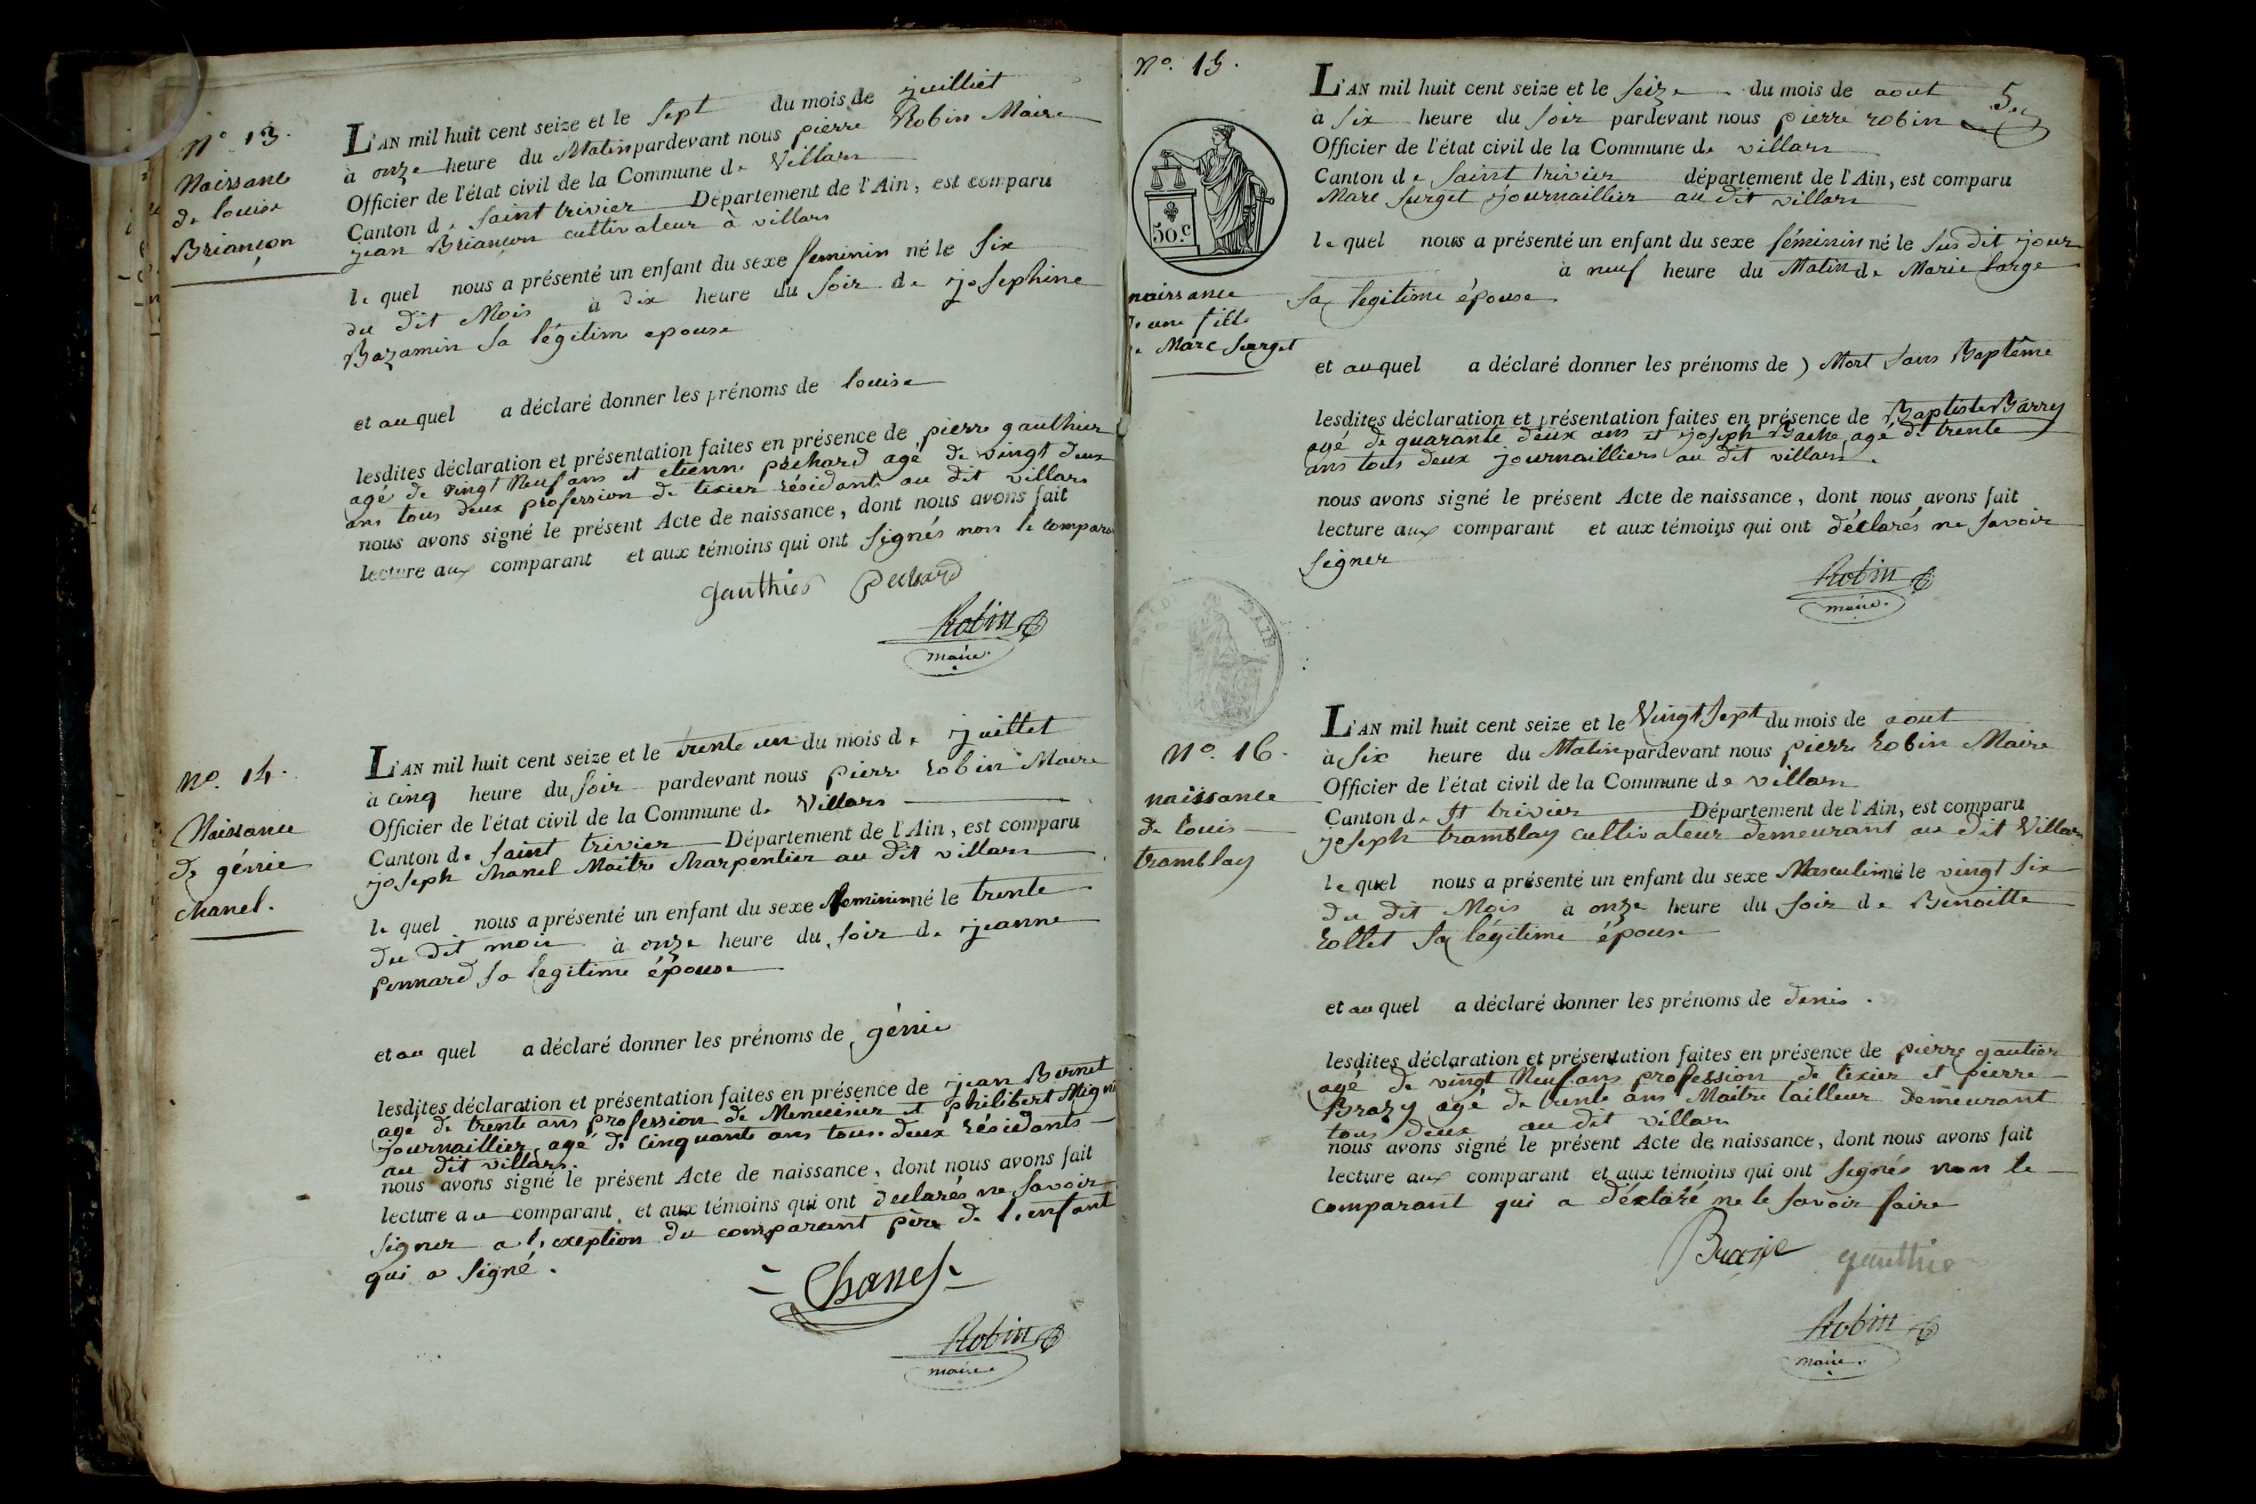 N° 13.
Naissance
de louise
Briançon
L'AN mil huit cent seize et le sept du mois de juilliet
à onze heure du Matin pardevant nous pierre Robin Maire
Officier de l'état civil de la Commune de Villars
Canton de saint trivier Département de l'Ain, est comparu
jean Briançon cultivateur à villars
le quel nous a présenté un enfant du sexe feminin né le six
du dit Mois à dix heure du soir de josephine
Bazamin sa légitime epouse
et au quel a déclaré donner les prénoms de louise
lesdites déclaration et présentation faites en présence de pierre gauthier
agé de vingt Neuf ans et etienne péchard agé de vingt deux
ans tous deux profession de tixier résidants au dit villars
nous avons signé le présent Acte de naissance, dont nous avons fait
lecture aux comparant et aux témoins qui ont signés non le compara
gauthier pechard
Robin
maire.
N°. 14.
Naissance
de génie
chanel.
L'AN mil huit cent seize et le trente un du mois de juillet
à cinq heure du soir pardevant nous pierre robin Maire
Officier de l'état civil de la Commune de Villars
Canton de saint trivier Département de l'Ain, est comparu
joseph chanel Maitre charpentier au dit villars
le quel nous a présenté un enfant du sexe feminin né le trente
du dit mois à onze heure du soir de jeanne
pennard sa legitime épouse
et au quel a déclaré donner les prénoms de génie
lesdites déclaration et présentation faites en présence de jean Bernet
agé de trente ans profession de Menuisier et philibert Mign
journaillier agé de cinquante ans tous deux résidants
au dit villars.
nous avons signé le présent Acte de naissance, dont nous avons fait
lecture au comparant et aux témoins qui ont declarés ne savoir
signer a l'exeption du comparant père de l'enfant
qui a signé.
Chanel
Robin
maire.
N°. 15.
50.c
naissance
de une fille
de Marc surget
5.e
L'AN mil huit cent seize et le seize du mois de aout
à six heure du soir pardevant nous pierre robin
Officier de l'état civil de la Commune de villars
Canton de saint trivier département de l'Ain, est comparu
Marc surget journaillier au dit villars
le quel nous a présenté un enfant du sexe féminin né le susdit jour
à neuf heure du Matin de Marie large
sa legitime épouse
et au quel a déclaré donner les prénoms de ) Mort sans Baptême
lesdites déclaration et présentation faites en présence de Baptiste Barry
agé de quarante deux ans et joseph Bache agé de trente
ans tous deux journailliers au dit villars.
nous avons signé le présent Acte de naissance, dont nous avons fait
lecture aux comparant et aux témoins qui ont déclarés ne savoir
signer
Robin
maire.
N°. 16.
naissance
de louis
tramblay
L'AN mil huit cent seize et le Vingt sept du mois de aout
à six heure du Matin pardevant nous pierre robin Maire
Officier de l'état civil de la Commune de villars
Canton de st trivier Département de l'Ain, est comparu
joseph tramblay cultivateur demeurant au dit Villars
le quel nous a présenté un enfant du sexe Masculin né le vingt six
du dit Mois à onze heure du soir de Benoitte
rollet sa légitime épouse
et au quel a déclaré donner les prénoms de denis.
lesdites déclaration et présentation faites en présence de pierre gautier
agé de vingt Neuf ans profession de tixier et pierre
Brazy agé de trente ans Maitre tailleur demeurant
tous deux au dit villars
nous avons signé le présent Acte de naissance, dont nous avons fait
lecture aux comparant et aux témoins qui ont signés non le
comparant qui a déclaré ne le savoir faire
Brazie gauthie
Robin
maire.